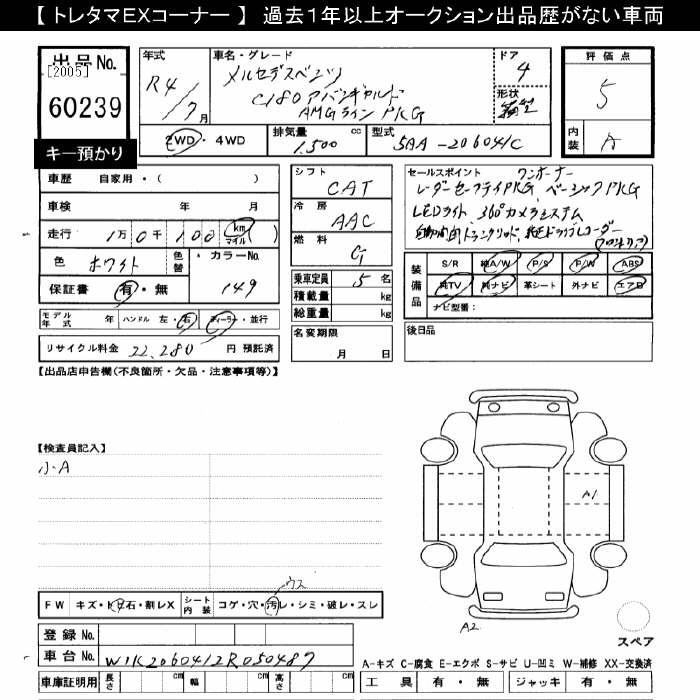 【 トレタマEXコーナー 】 過去1年以上オークション出品歴がない車両
出品No.
[2005]
60239
キー預かり
年式
R4/7月
車名・グレード
メルセデスベンツ
C180アバンギャルド
AMGラインPKG
ドア
4
形状
箱型
評価点
5
内装
A
2WD・4WD
排気量
1.500 cc
型式
5AA-206041C
車歴 自家用・( )
車検 年 月
走行 1万0千100 km マイル )
色 ホワイト
色替
カラーNo.
149
保証書 有・無
モデル年式 年
ハンドル 左・右
ディーラー・並行
リサイクル料金 22,280 円 預託済
シフト
CAT
冷房
AAC
燃料
G
乗車定員 5名
積載量 kg
総重量 kg
名変期限
月 日
セールスポイント ワンオーナー
レーダーセーフティPKG、ベーシックPKG
LEDライト、360°カメラシステム
自動開閉トランクリッド、純正ドライブレコーダー
(フロントリア)
装備品
S/R 純A/W P/S P/W ABS
純TV 純ナビ 革シート 外ナビ エアB
ナビ型番:
後日品
【出品店申告欄(不良箇所・欠品・注意事項等)】
【検査員記入】
小・A
A1
A2
ウス
FW キズ・トビ石・割レX
シート内装 コゲ・穴・汚レ・シミ・破レ・スレ
登録No.
車台No. W1K2060412R050487
車庫証明用 長さ cm 幅 cm 高さ cm
スペア
A-キズ C-腐食 E-エクボ S-サビ U-凹ミ W-補修 XX-交換済
工具 有・無 ジャッキ 有・無